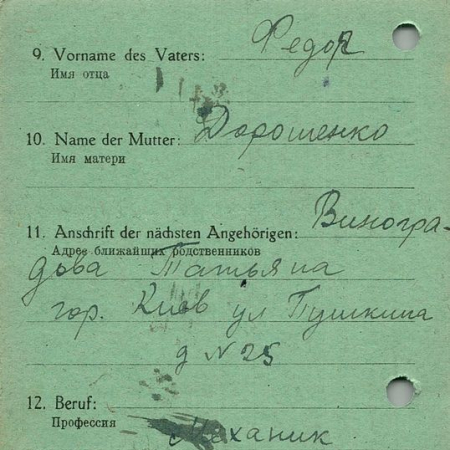 9. Vorname des Vaters: Федор
Имя отца
10. Name der Mutter: Дорошенко
Имя матери
11. Anschrift der nächsten Angehörigen: Виногра-
Адрес ближайших родственников
дова Татьяна
гор. Киев ул Пушкина
д № 25
12. Beruf:
Профессия Механик